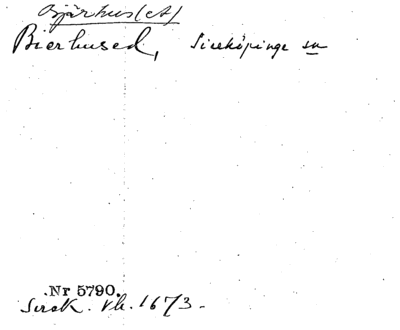 Bjärhus(et)
Bierhused, Sireköpinge sn
Nr 5790.
Sirek. Vb. 1673.